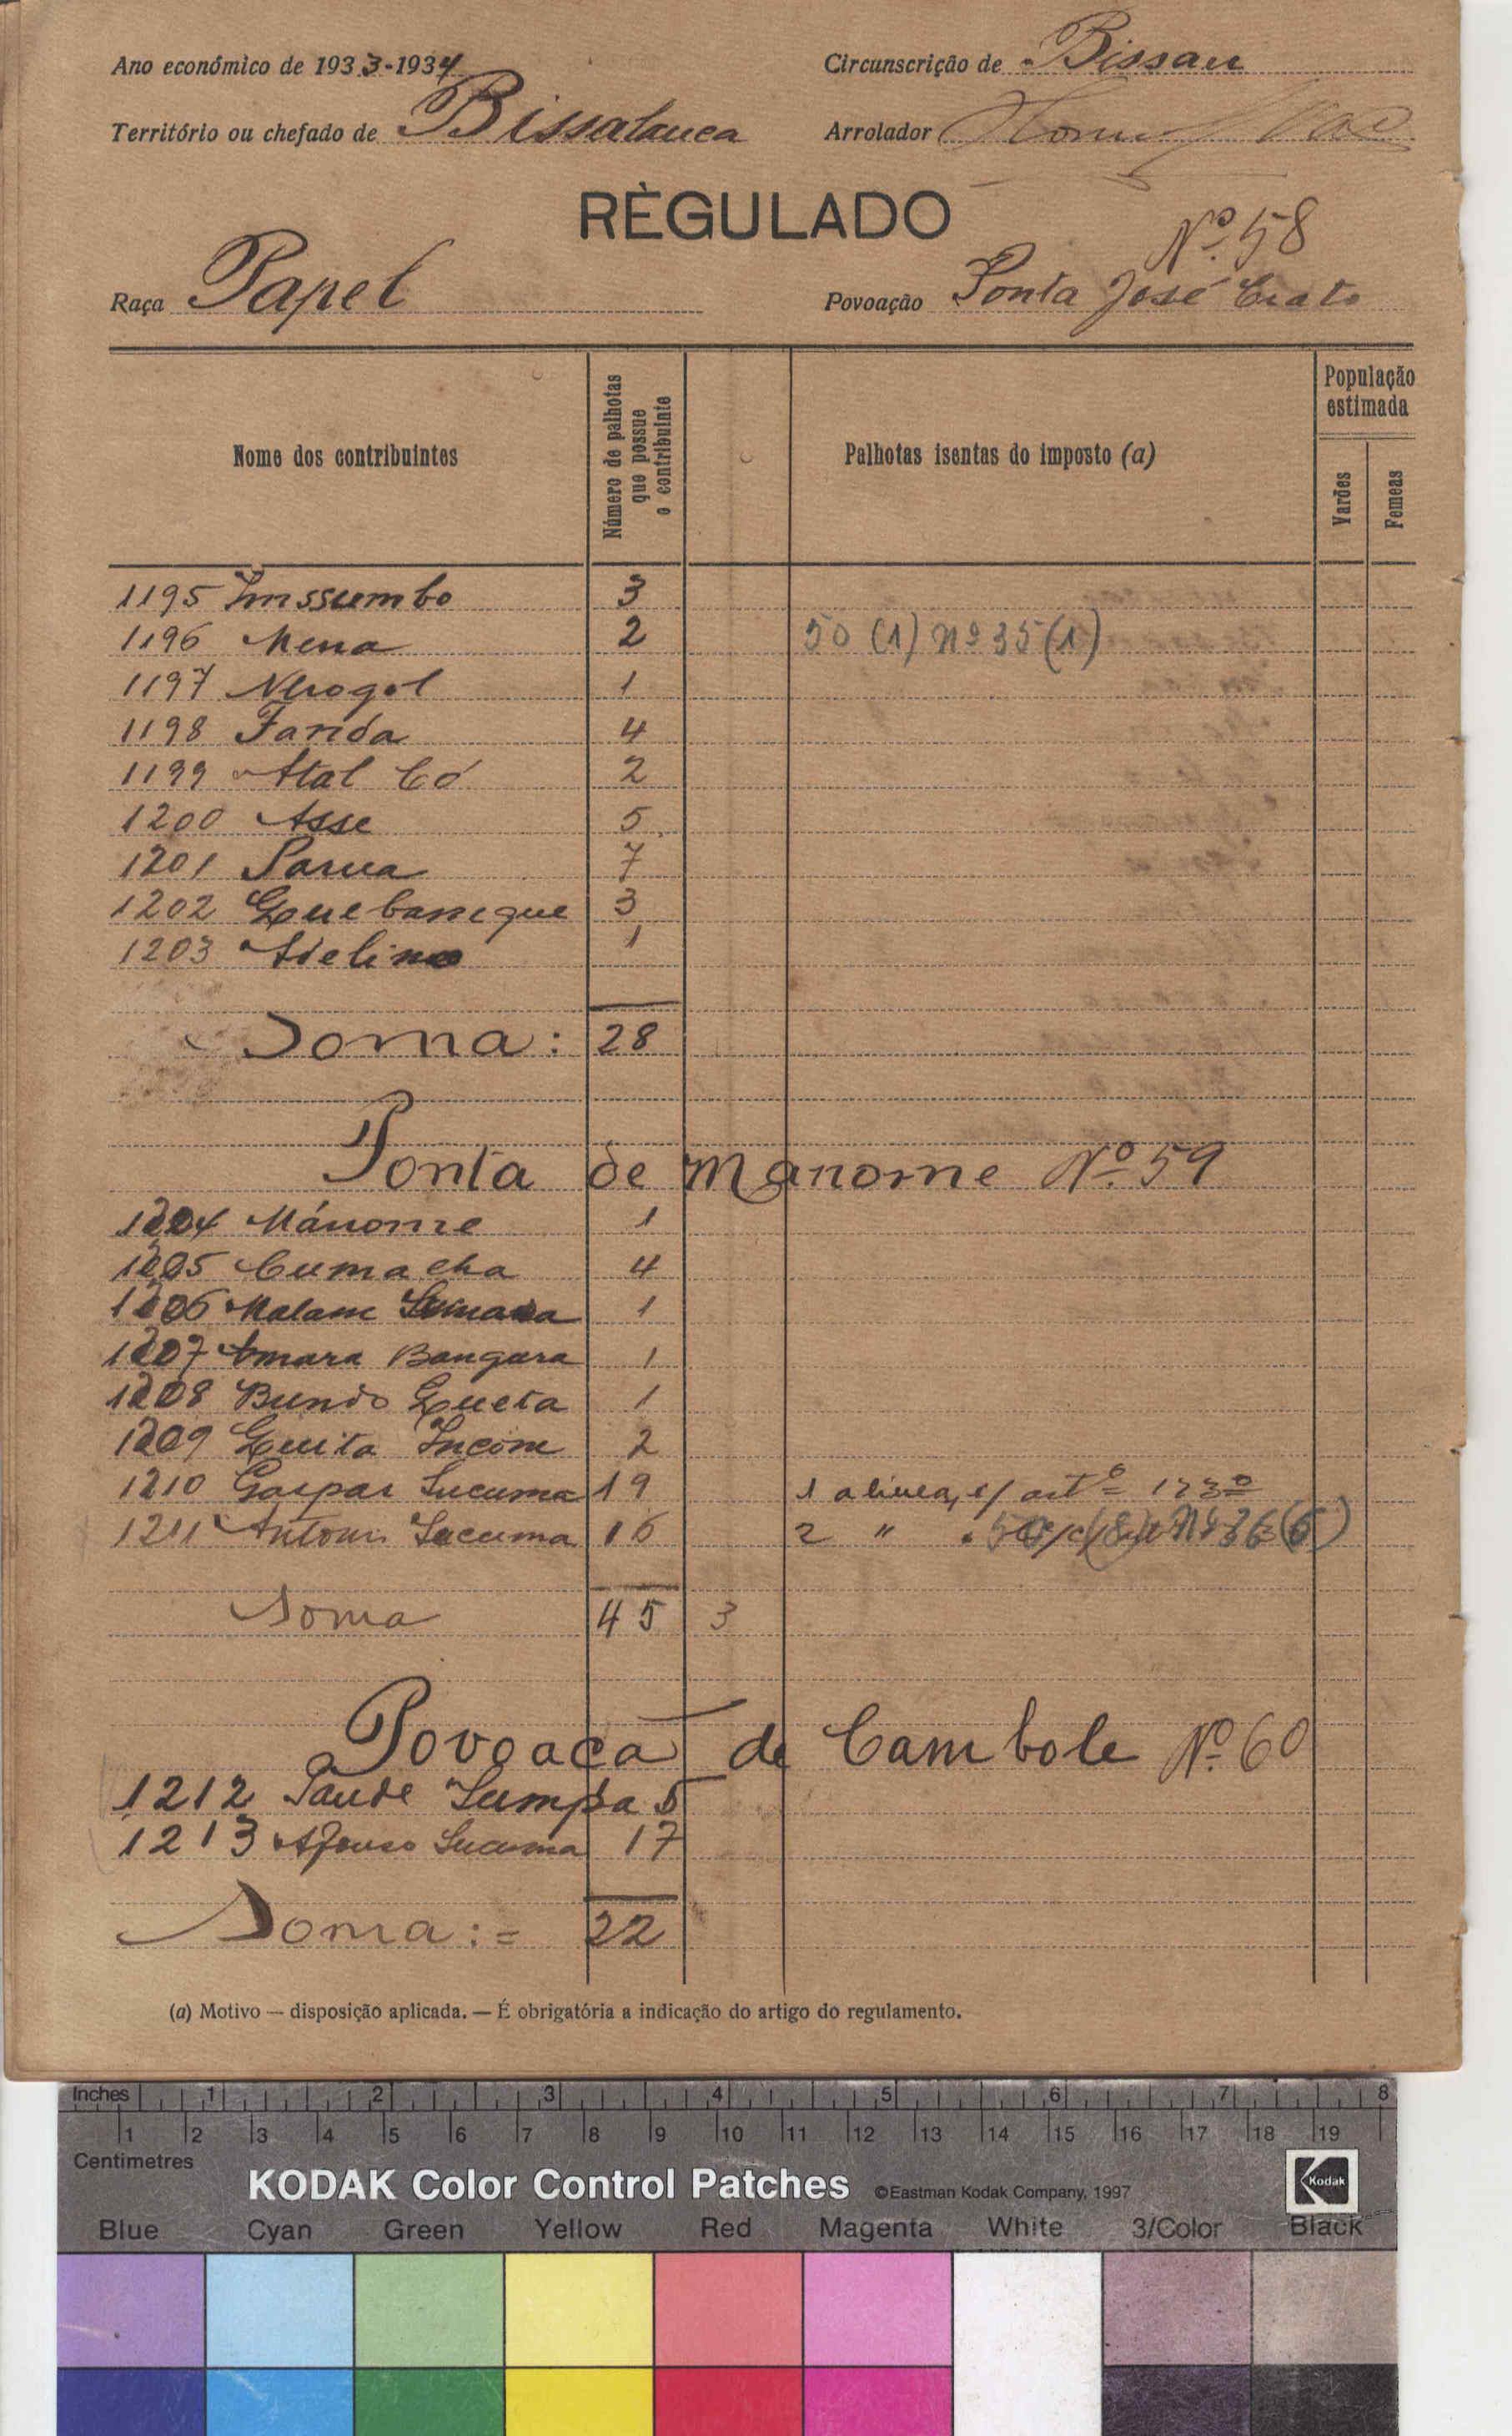 Ano económico de 1933-1934
Circunscrição de Bissau
Território ou chefado de Bissalanca
Arrolador
RÈGULADO
Nº 58
Raça Papel
Povoação Ponta José Crato
Nome dos contribuintes
Número de palhotas que possue o contribuinte
Palhotas isentas do imposto (a)
População estimada
Varões
Femeas
1195 Imssumbo 3
1196 Mena 2 50 (1) nº 35 (1)
1197 Nhogol 1
1198 Farida 4
1199 Atal Có 2
1200 Asse 5
1201 Parua 7
1202 Quebanique 3
1203 Adelino 1
Soma: 28
Ponta de Manome Nº 59
1204 Mánome 1
1205 Cumacha 4
1206 Malam 1
1207 Amara Bangura 1
1208 Bundo Queta 1
1209 Quita Incóm 2
1210 Gaspar Sucuma 19 1 alinea, artº 123º
1211 Antoni Sucuma 16 2 " Nº 36 (6)
Soma 45 3
Povoaca de Cambole Nº 60
1212 Saude Sumpa 5
1213 Afonso Sucuma 17
Soma:= 22
(a) Motivo — disposição aplicada. — É obrigatória a indicação do artigo do regulamento.
Inches 1 2 3 4 5 6 7 8
1 2 3 4 5 6 7 8 9 10 11 12 13 14 15 16 17 18 19
Centimetres
KODAK Color Control Patches ©Eastman Kodak Company, 1997 Kodak
Blue Cyan Green Yellow Red Magenta White 3/Color Black